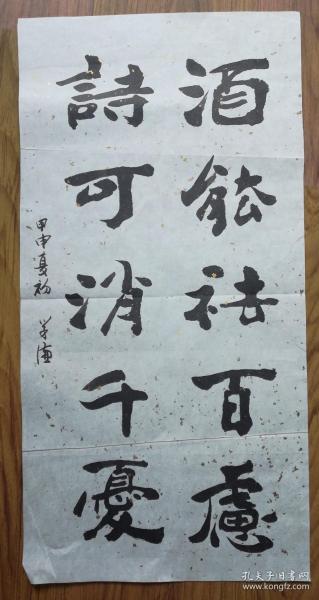 酒能祛百慮
詩可消千憂
甲申夏初
孔夫子旧书网